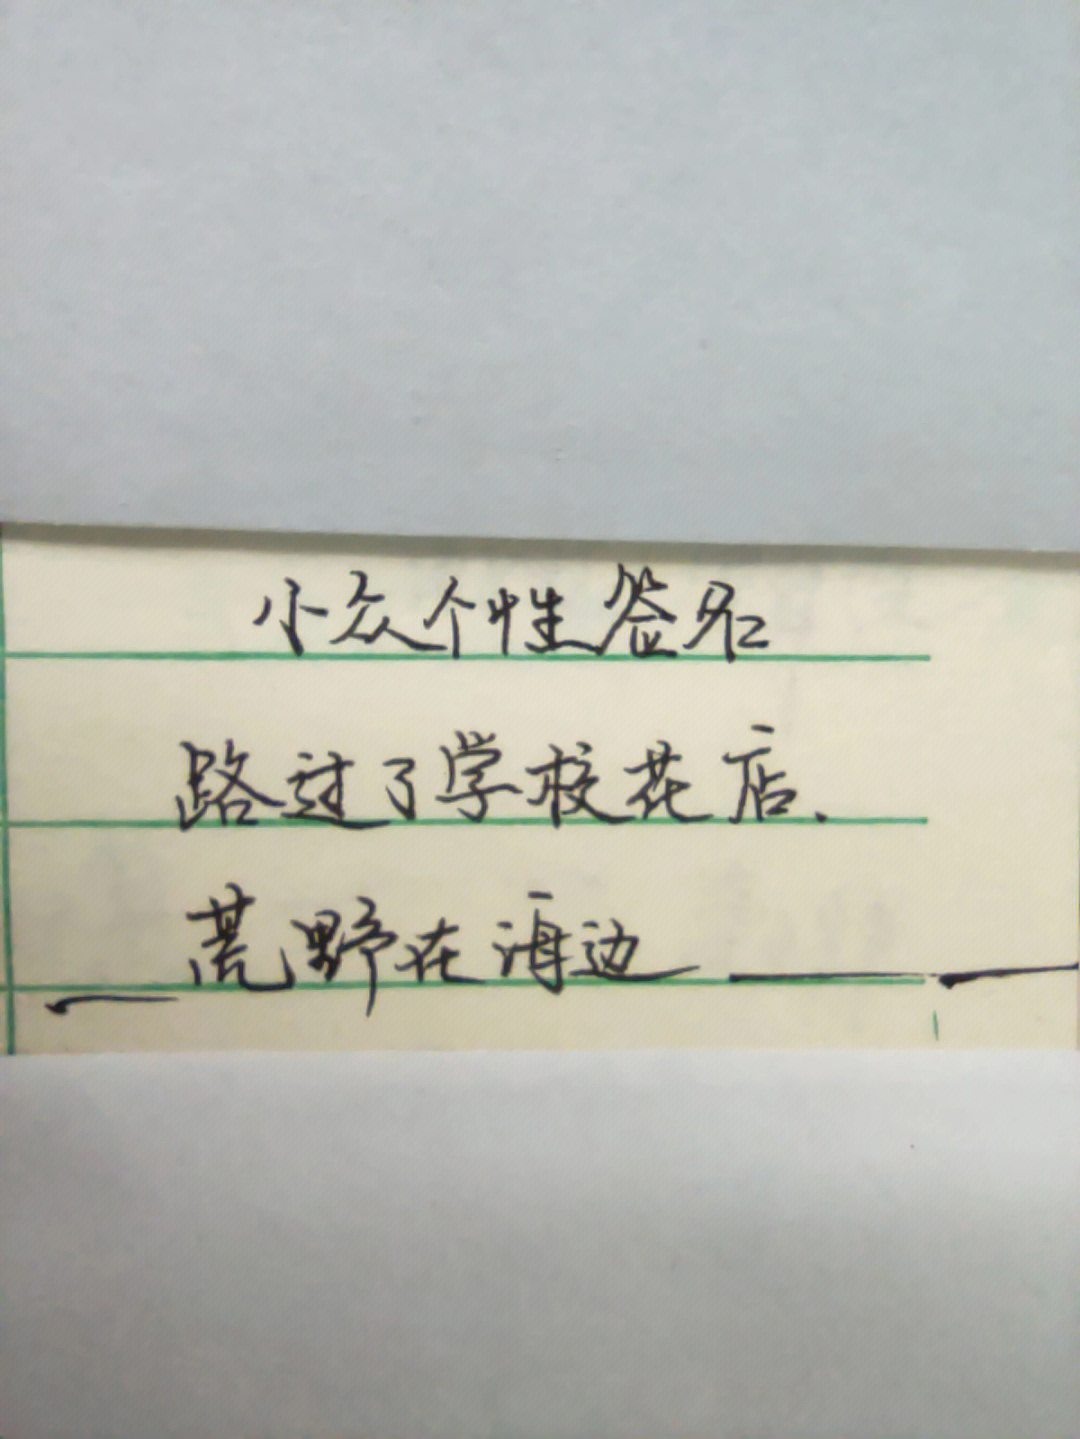 小众个性签名
路过了学校花店、
荒野在海边——